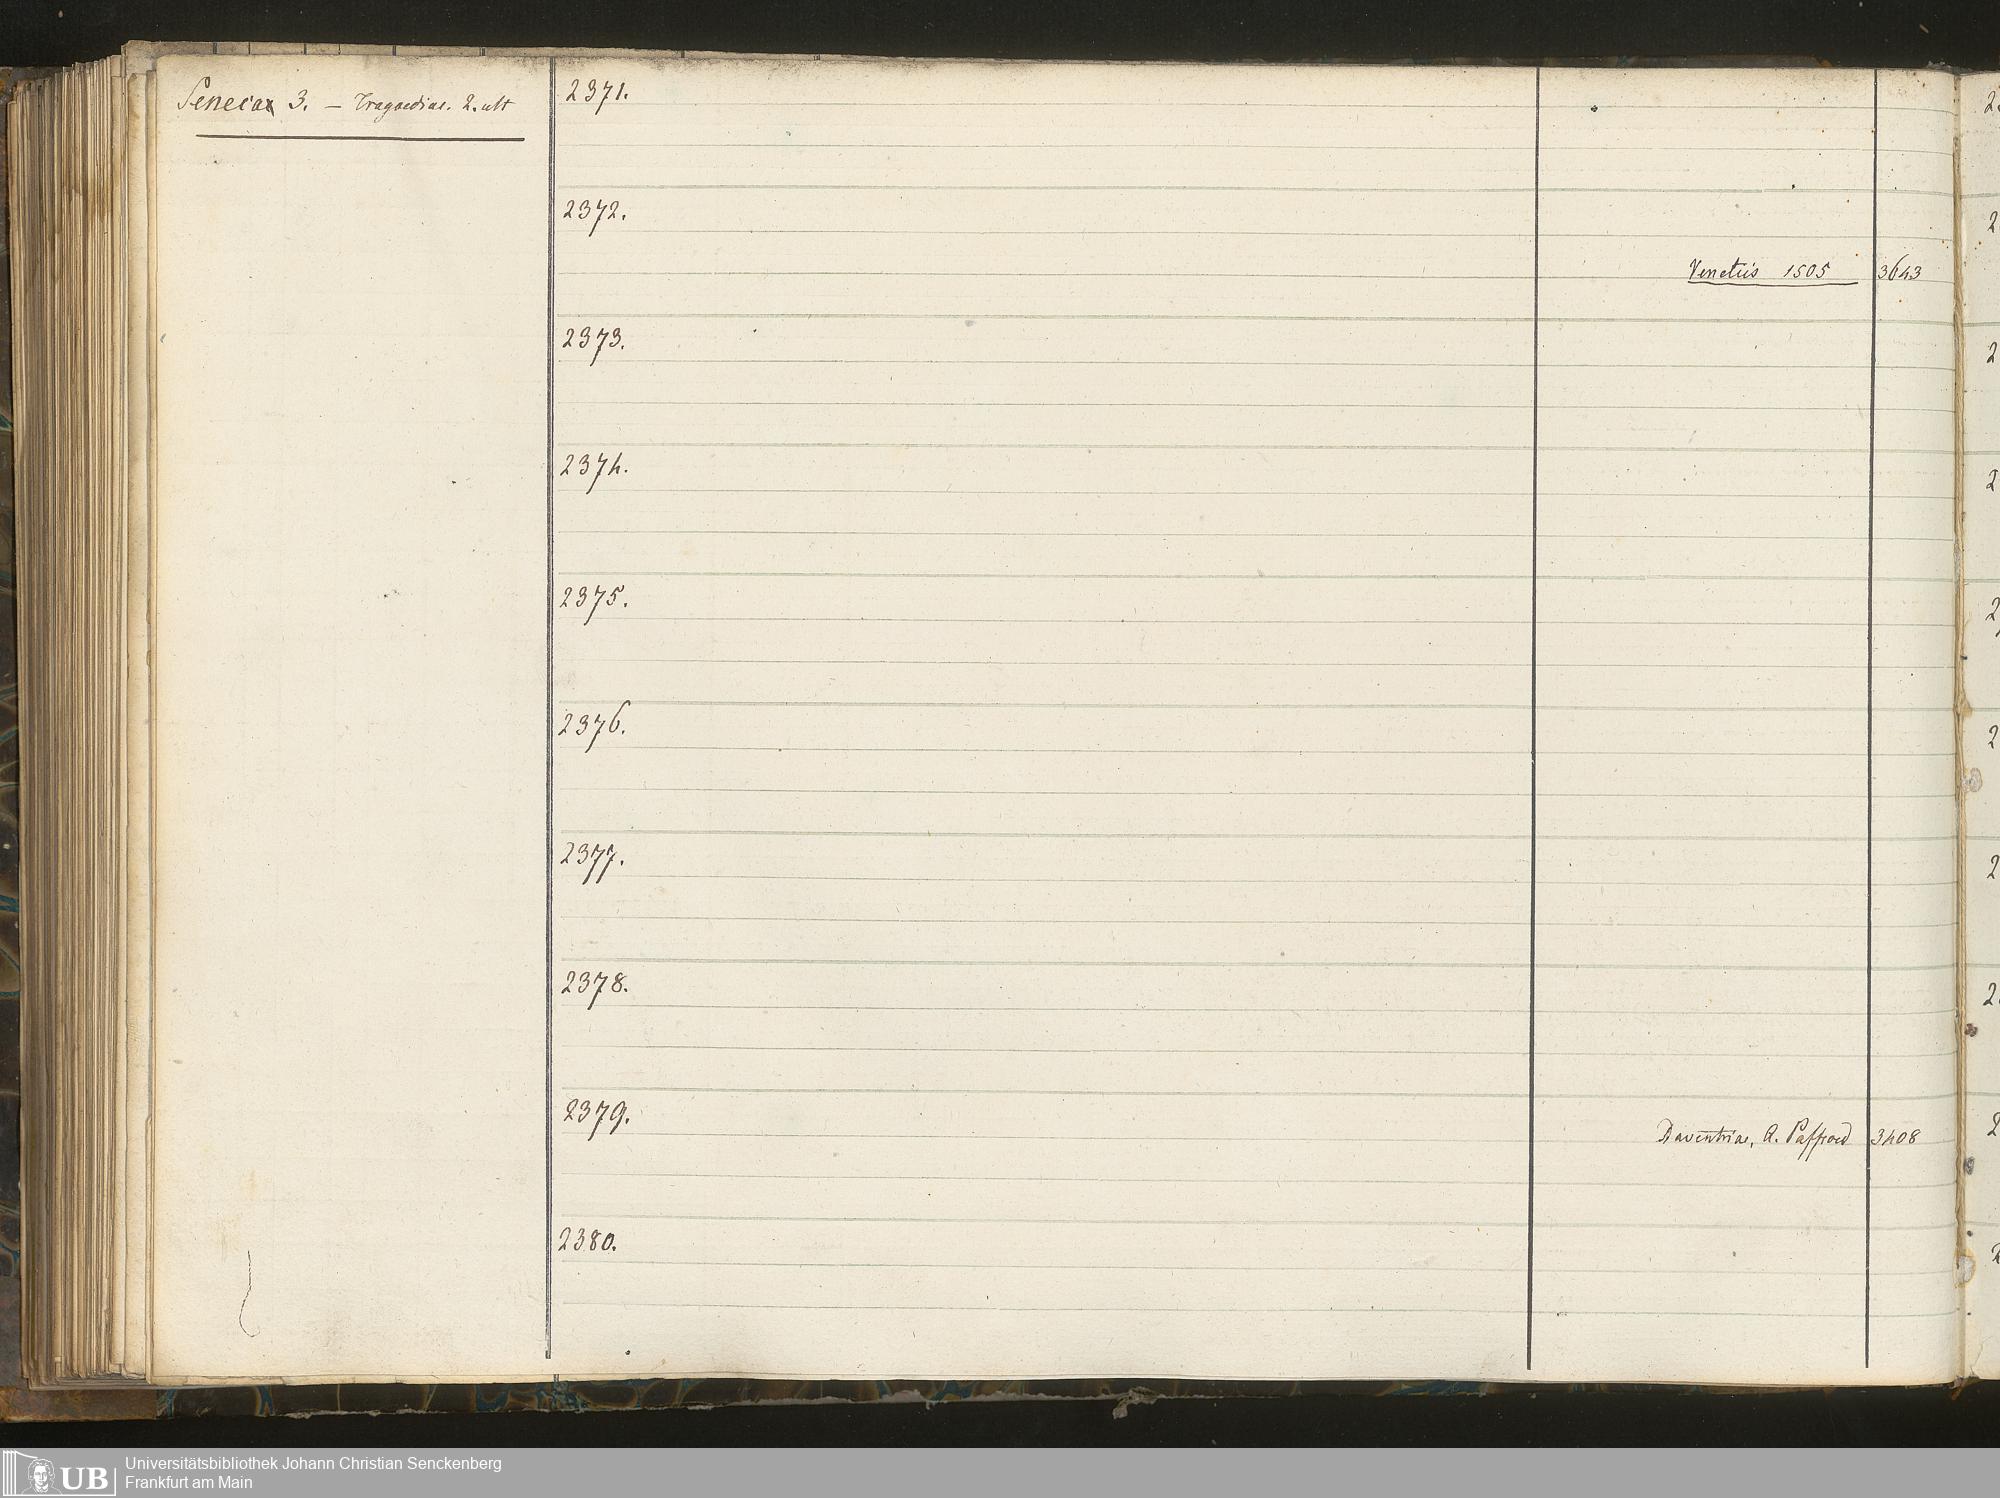 Senecae 3. — Tragoediae. 2. ult
2371.
2372.
Venetiis 1505 3643
2373.
2374.
2375.
2376.
2377.
2378.
2379.
Daventriae, A. Paffroed 3408
2380.
UB
Universitätsbibliothek Johann Christian Senckenberg
Frankfurt am Main